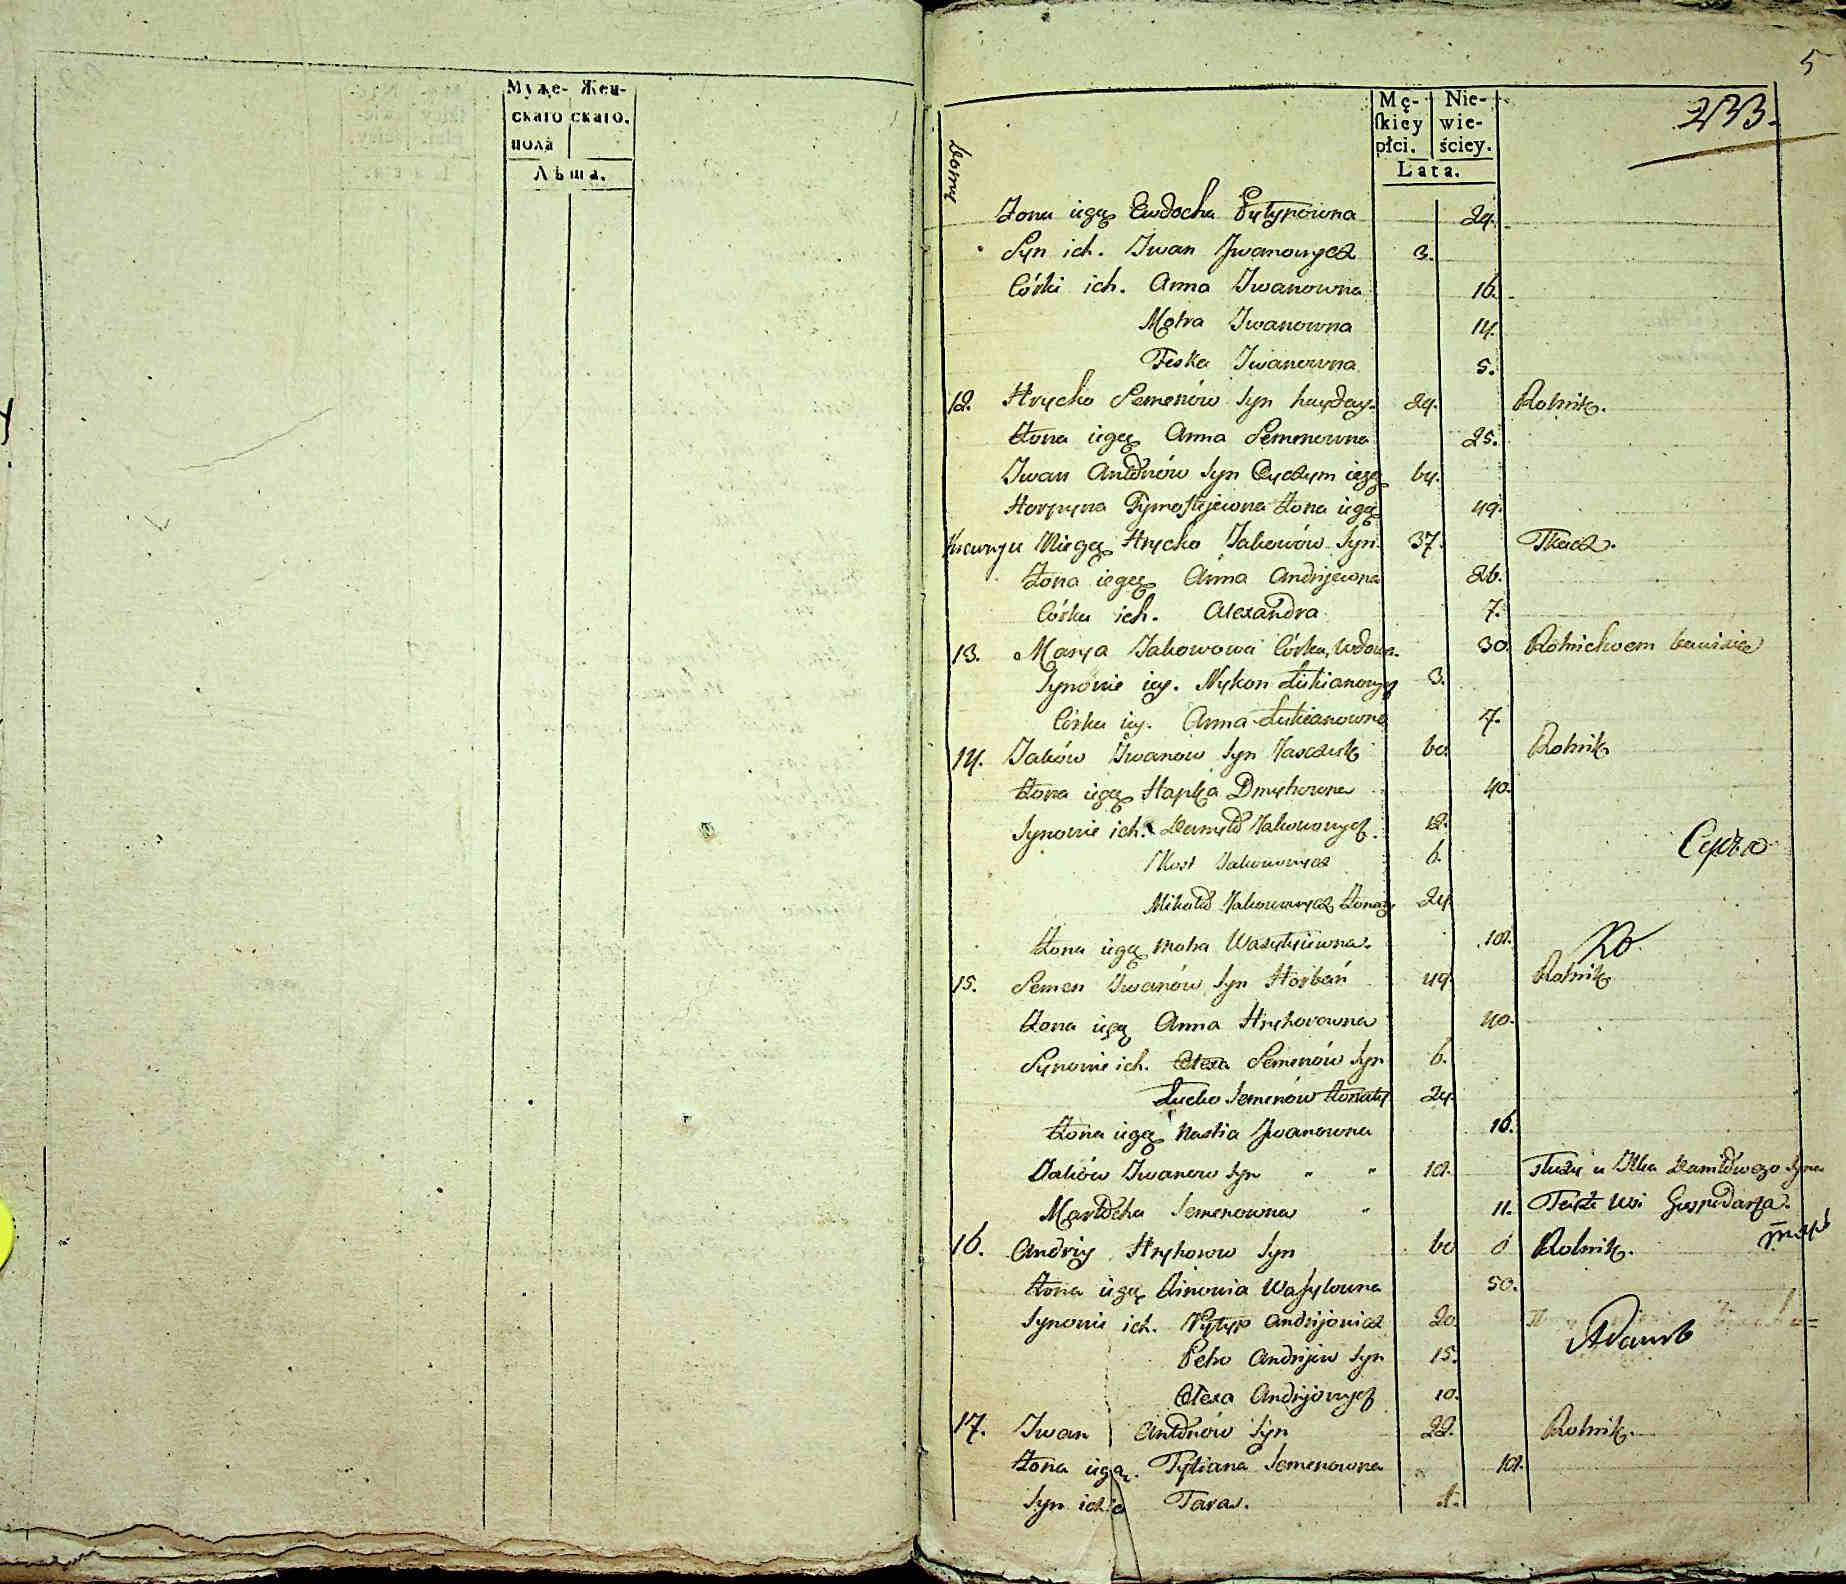 Муже- Жен-
скаго скаго.
пола
Лѣта.
5
Mę- Nie-
skiey wie-
płci. ściey.
Lata.
233.
Domy
Żona iegą Ewdocha Pyłypowna 29.
Syn ich. Iwan Iwanowycz 3.
Córki ich. Anna Iwanowna 16.
Motra Iwanowna 14.
Feska Iwanowna 5.
12. Hrycko Semenów Syn 29. Rolnik.
Żona iegą Anna Semenowna 25.
Iwan Antonów Syn Oyczym iegą 64.
Horpyna Tymofiejewna Żona iegą 49.
Niegą Hrycko Jakowów Syn 37. Tkacz.
Żona iegą Anna Andrijewna 26.
Córka ich. Alexandra 7.
13. Marya Jakowowa Córka, Wdowa. 30. Rolnictwem bawi się
Synowie iey. Nykon Łukianowycz 3.
Córka iey. Anna Łukianowna 7.
14. Jaków Iwanow Syn 60. Rolnik
Żona iegą Hapka Dmytrowna 40.
Synowie ich. Danyło Jakowowycz. 12.
Kost Jakowowycz 6.
Cydzo
Mikoła Jakowowycz Żonaty 24.
Żona iegą Motra Wasylijewna. 18.
15. Semen Iwanów Syn Horbań 49. Rolnik
Żona iegą Anna Hryhorowna 40.
Synowie ich. Olexa Semenów Syn 6.
Łucko Semenów Żonaty 24.
Żona iegą Nastia Iwanowna 16.
Jaków Iwanow Syn " " 18. służy u Ilka Daniłowego Syna
Martocha Semenowna " 11. Teyże wsi Gospodarza.
16. Andriy Hryhorow Syn 60 Rolnik.
Żona iegą Zinowia Wasylowna 50.
Synowie ich. Pyłyp Andrijowicz 20.
Petro Andrijew Syn 15.
Olexa Andrijowycz 10.
17. Iwan Antonów Syn 22. Rolnik.
Żona iegą. Tytiana Semenowna 18.
Syn ich Taras. 1.